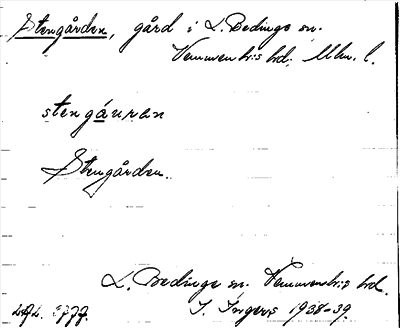 Stengården, gård i L. Bedinge sn.
Vemmenh:s hd. Mlm. l.
stengáuran
Stengården.
L. Bedinge sn. Vemmenh:s hd.
I. Ingers 1938-39.